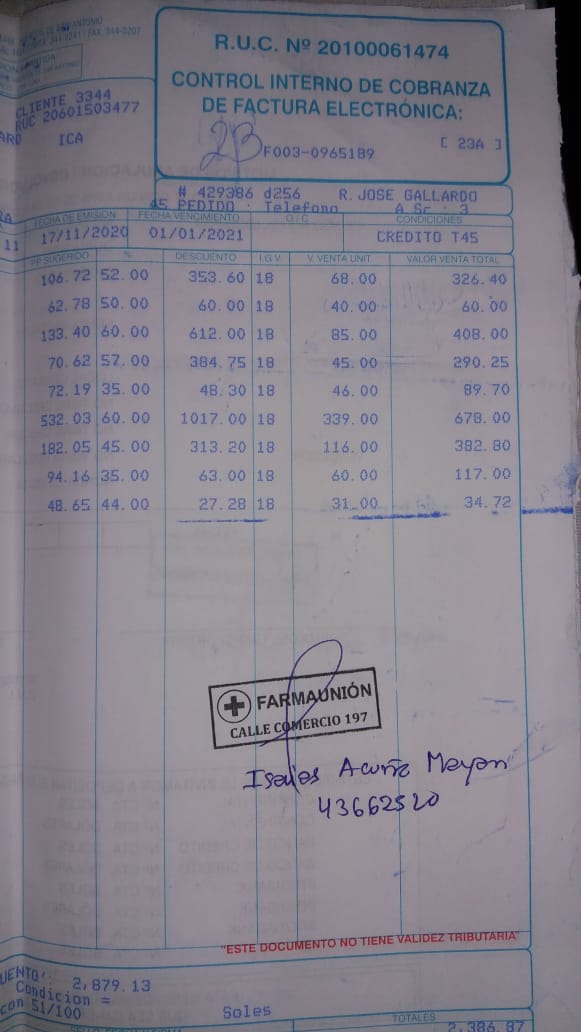 FAX. 344-0207
R.U.C. Nº 20100061474
CONTROL INTERNO DE COBRANZA
DE FACTURA ELECTRÓNICA:
2B
F003-0965189
[ 23A ]
CLIENTE 3344
RUC 20601503477
ICA
# 429386 d256 R. JOSE GALLARDO
45 PEDIDO : Telefono A Sr : 3
FECHA DE EMISIÓN FECHA VENCIMIENTO O / C CONDICIONES
11 17/11/2020 01/01/2021 CREDITO T45
PP. SUGERIDO % DESCUENTO I.G.V. V. VENTA UNIT. VALOR VENTA TOTAL
106.72 52.00 353.60 18 68.00 326.40
62.78 50.00 60.00 18 40.00 60.00
133.40 60.00 612.00 18 85.00 408.00
70.62 57.00 384.75 18 45.00 290.25
72.19 35.00 48.30 18 46.00 89.70
532.03 60.00 1017.00 18 339.00 678.00
182.05 45.00 313.20 18 116.00 382.80
94.16 35.00 63.00 18 60.00 117.00
48.65 44.00 27.28 18 31.00 34.72
FARMAUNIÓN
CALLE COMERCIO 197
Isaias Acuña
43662520
"ESTE DOCUMENTO NO TIENE VALIDEZ TRIBUTARIA"
UENTO': 2,879.13
Condicion =
con 51/100 Soles
TOTALES
2,386.87